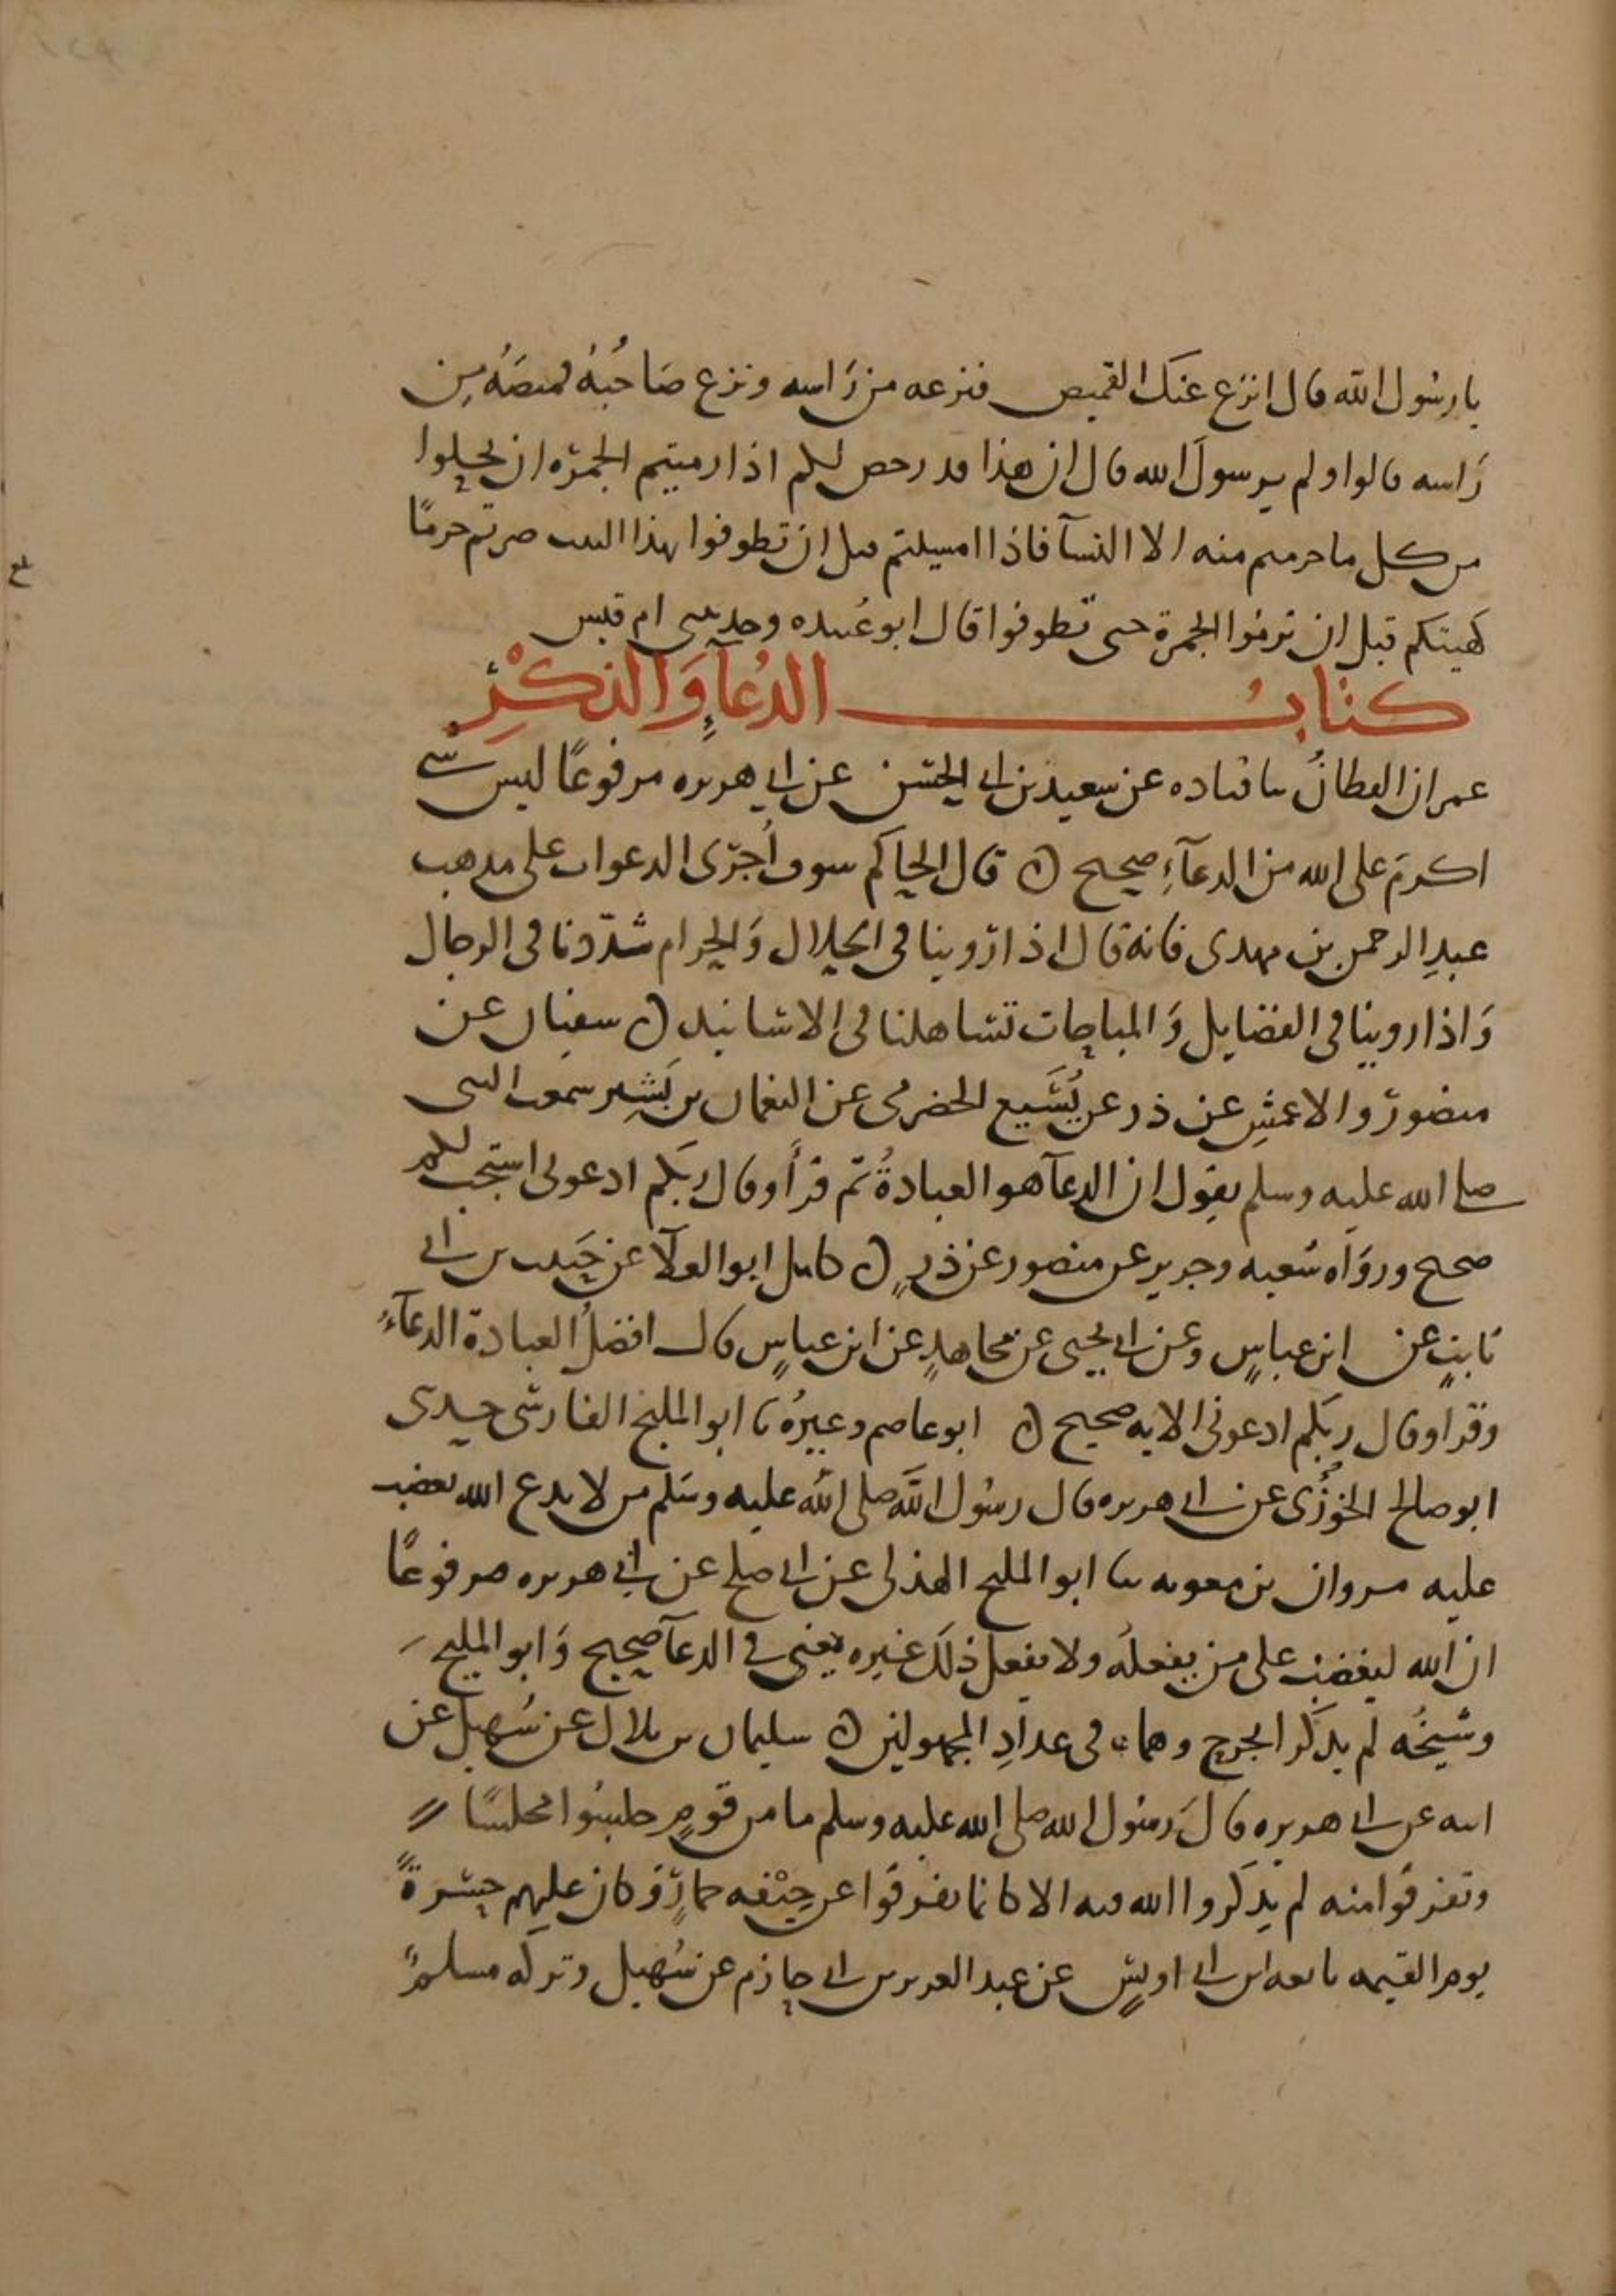 يا رسول الله قال انزع عنك القميص فنزعه من راسه ونزع صاحبه قميصه من
راسه قالوا ولم يرسول الله قال ان هذا قد رخص لكم اذا رميتم الجمرة ان تحلوا
من كل ما حرمتم منه الا النسآ فاذا امسيتم قبل ان تطوفوا بهذا البيت صرتم حرمًا
كهيتكم قبل ان ترموا الجمرة حتى تطوفوا قال ابو عبيده وحدثتني ام قيس
كتاب الدعآء والذكر
عمران القطان ثنا قتاده عن سعيد بن ابي الحسن عن ابي هريره مرفوعًا ليس شي
اكرم على الله من الدعآء صحيح ه قال الحاكم سوف أجرى الدعوات على مذهب
عبد الرحمن بن مهدى فانه قال اذا روينا في الحلال والحرام شددنا في الرجال
واذا روينا في الفضايل والمباحات تساهلنا في الاسانيد ه سفيان عن
منصور والاعمش عن ذر عن يُسَيع الحضرمي عن النعمان بن بشير سمعت النبي
صلى الله عليه وسلم يقول ان الدعآ هو العبادة ثم قرأ وقال ربكم ادعوني استجب لكم
صحيح ورواه شعبه وجرير عن منصور عن ذر ه كامل ابو العلآ عن حبيب بن ابي
ثابت عن ابن عباس وعن ابي يحيى عن مجاهد عن ابن عباس قال افضل العبادة الدعآء
وقرا وقال ربكم ادعوني الايه صحيح ه ابو عاصم وغيره ثنا ابو المليح الفارسي حدثني
ابو صالح الخوزي عن ابي هريره قال رسول الله صلى الله عليه وسلم من لا يدع الله يغضب
عليه مروان بن معويه ثنا ابو المليح الهذلي عن ابي صلح عن ابي هريره مرفوعًا
ان الله ليغضب على من يفعله ولا يفعل ذلك غيره يعني في الدعآ صحيح وابو المليح
وشيخه لم يذكرا بجرح وهما في عداد المجهولين ه سليمان بن بلال عن سهيل عن
ابيه عن ابي هريره قال رسول الله صلى الله عليه وسلم ما من قوم جلسوا مجلسًا
وتفرقوا منه لم يذكروا الله فيه الا كانما تفرقوا عن جيفه حمار وكان عليهم حسرةً
يوم القيمه تابعه ابن ابي اويس عن عبد العزيز بن ابي حازم عن سهيل وتركه مسلم